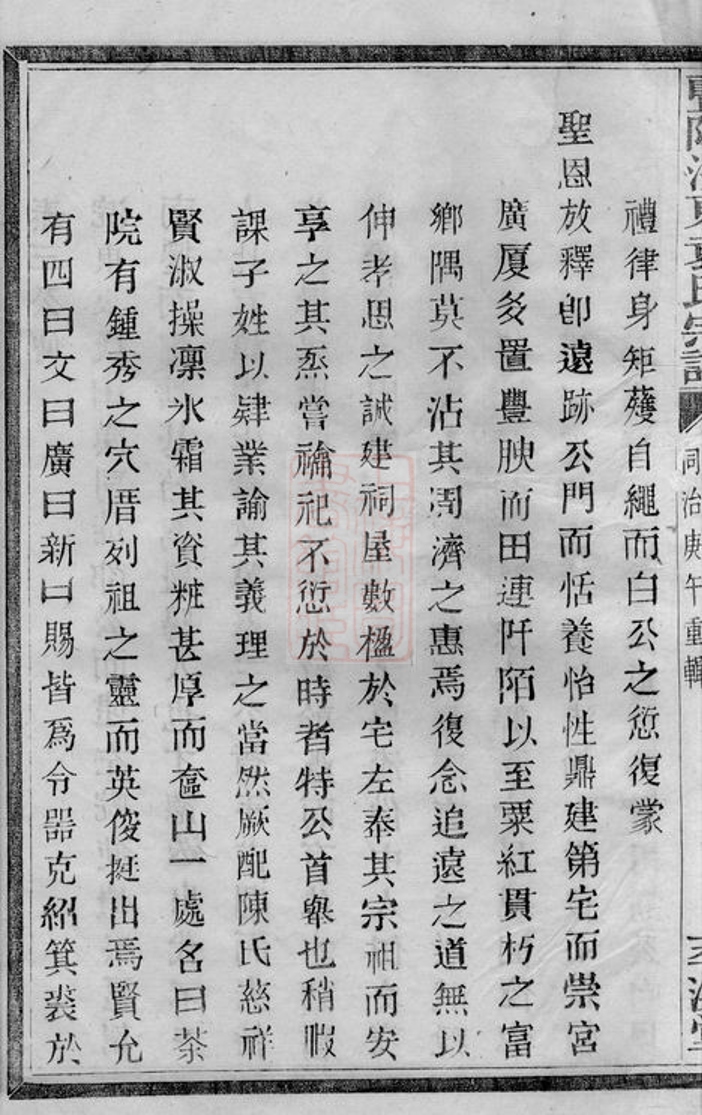 暨陽江夏黃氏宗譜
同治庚午重輯
禮律身矩蒦自繩而白公之愆復蒙
聖恩放釋卽遠跡公門而恬養怡性鼎建第宅而崇宮
廣厦爰置豐腴而田連阡陌以至粟紅貫朽之富
鄉隅莫不沾其周濟之惠焉復念追遠之道無以
伸孝思之誠建祠屋數楹於宅左奉其宗祖而安
享之其烝嘗禴祀不愆於時者特公首舉也稍暇
課子姓以肄業諭其義理之當然厥配陳氏慈祥
賢淑操凜氷霜其資粧甚厚而奩山一處名曰茶
院有鍾秀之穴厝列祖之靈而英俊挺出焉賢允
有四曰文曰廣曰新曰賜皆爲令器克紹箕裘於